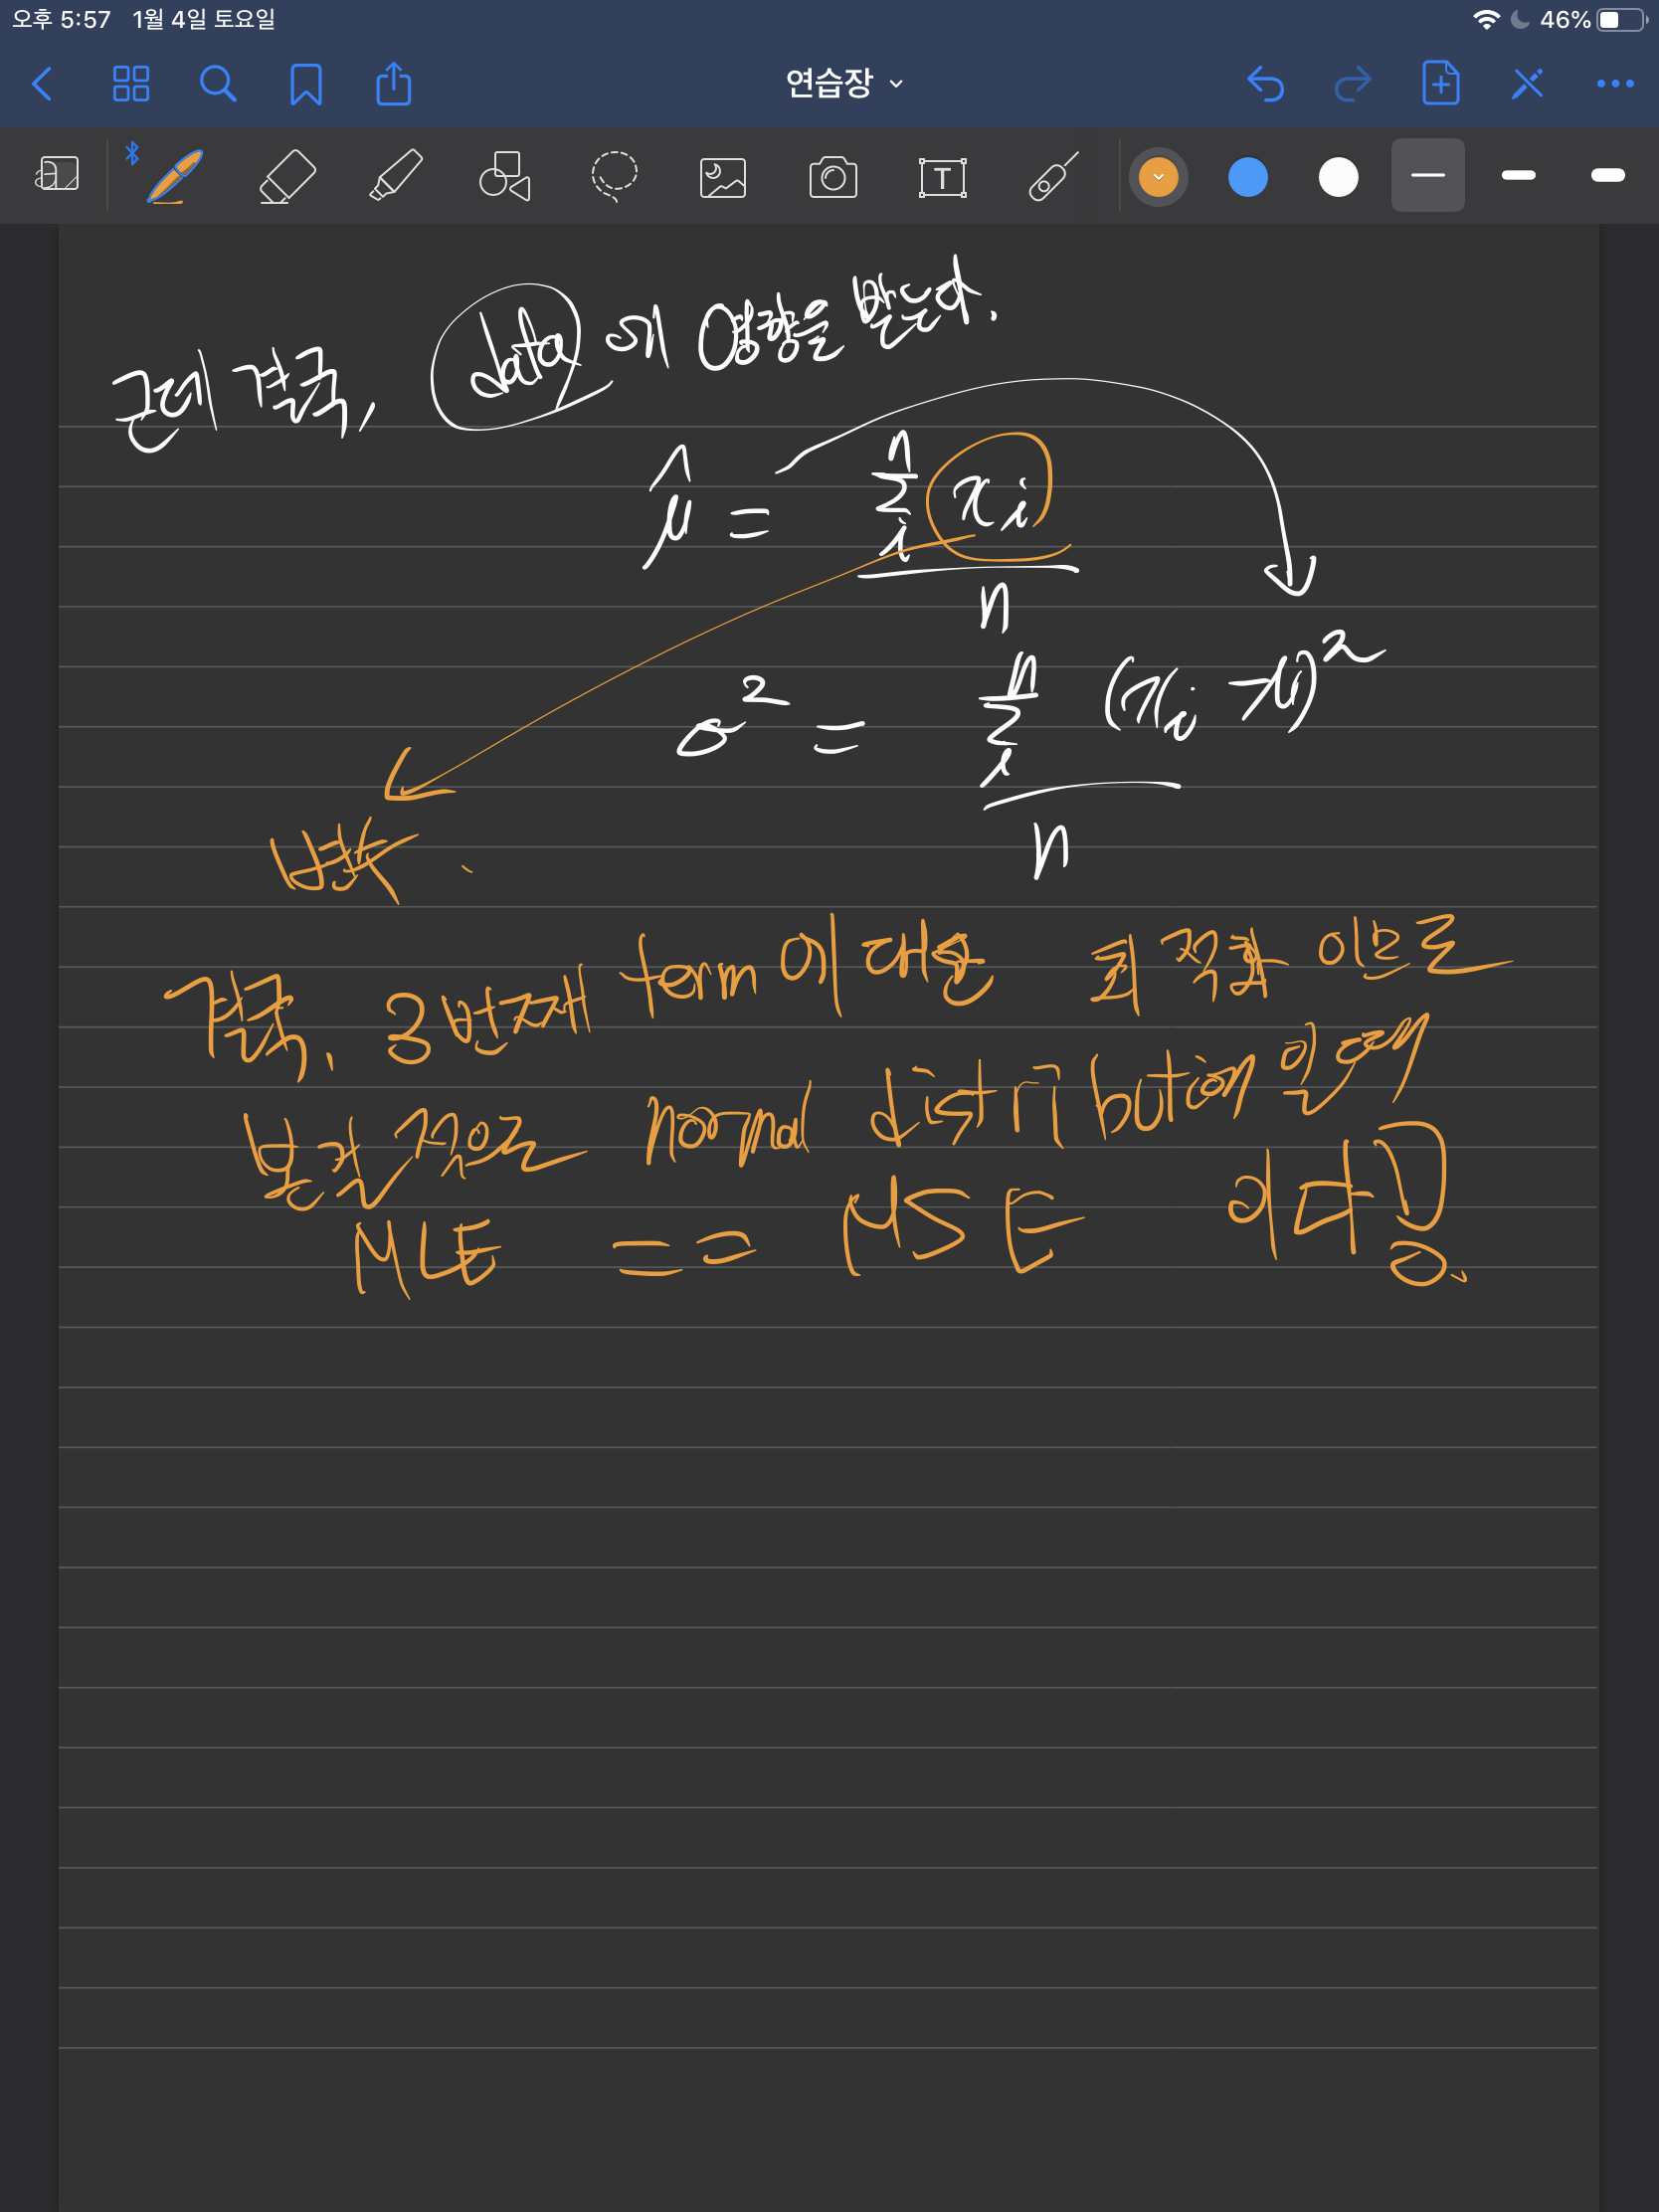 오후 5:57 1월 4일 토요일 46%
연습장
T
근데 결국, data에 영향을 받는다.
μ̂ = Σ^n_i x_i / n
σ² = Σ^n_i (x_i - μ)² / n
변수.
결국, 3번째 term에 대한 최적화 이므로
본질적으로 normal distribution 일 때
MLE == MSE 이다